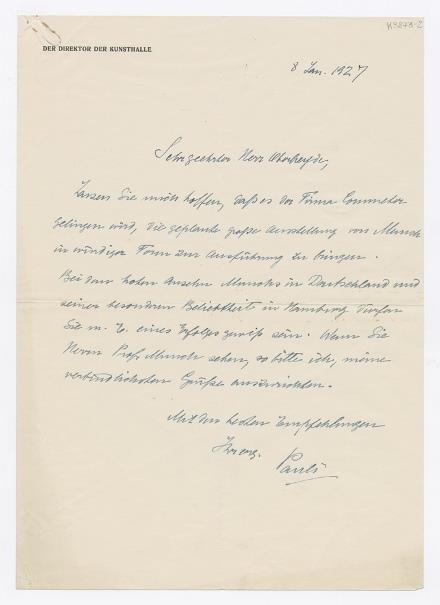 K3873-2
DER DIREKTOR DER KUNSTHALLE
8 Jan. 1927
Sehrgeehrter Herr
Lassen Sie mich hoffen, daß es der Firma Commeter
gelingen wird, die geplante große Ausstellung von Munch
in würdiger Form zur Ausführung zu bringen.
Bei dem hohen Ansehn Munchs in Deutschland und
seiner besondern Beliebtheit in Hamburg dürfen
Sie m. E. eines Erfolges gewiß sein. Wenn Sie
Herrn Prof. Munch sehen, so bitte ich, meine
verbindlichsten Grüße auszurichten.
Mit den besten Empfehlungen
Ihr erg.
Pauli